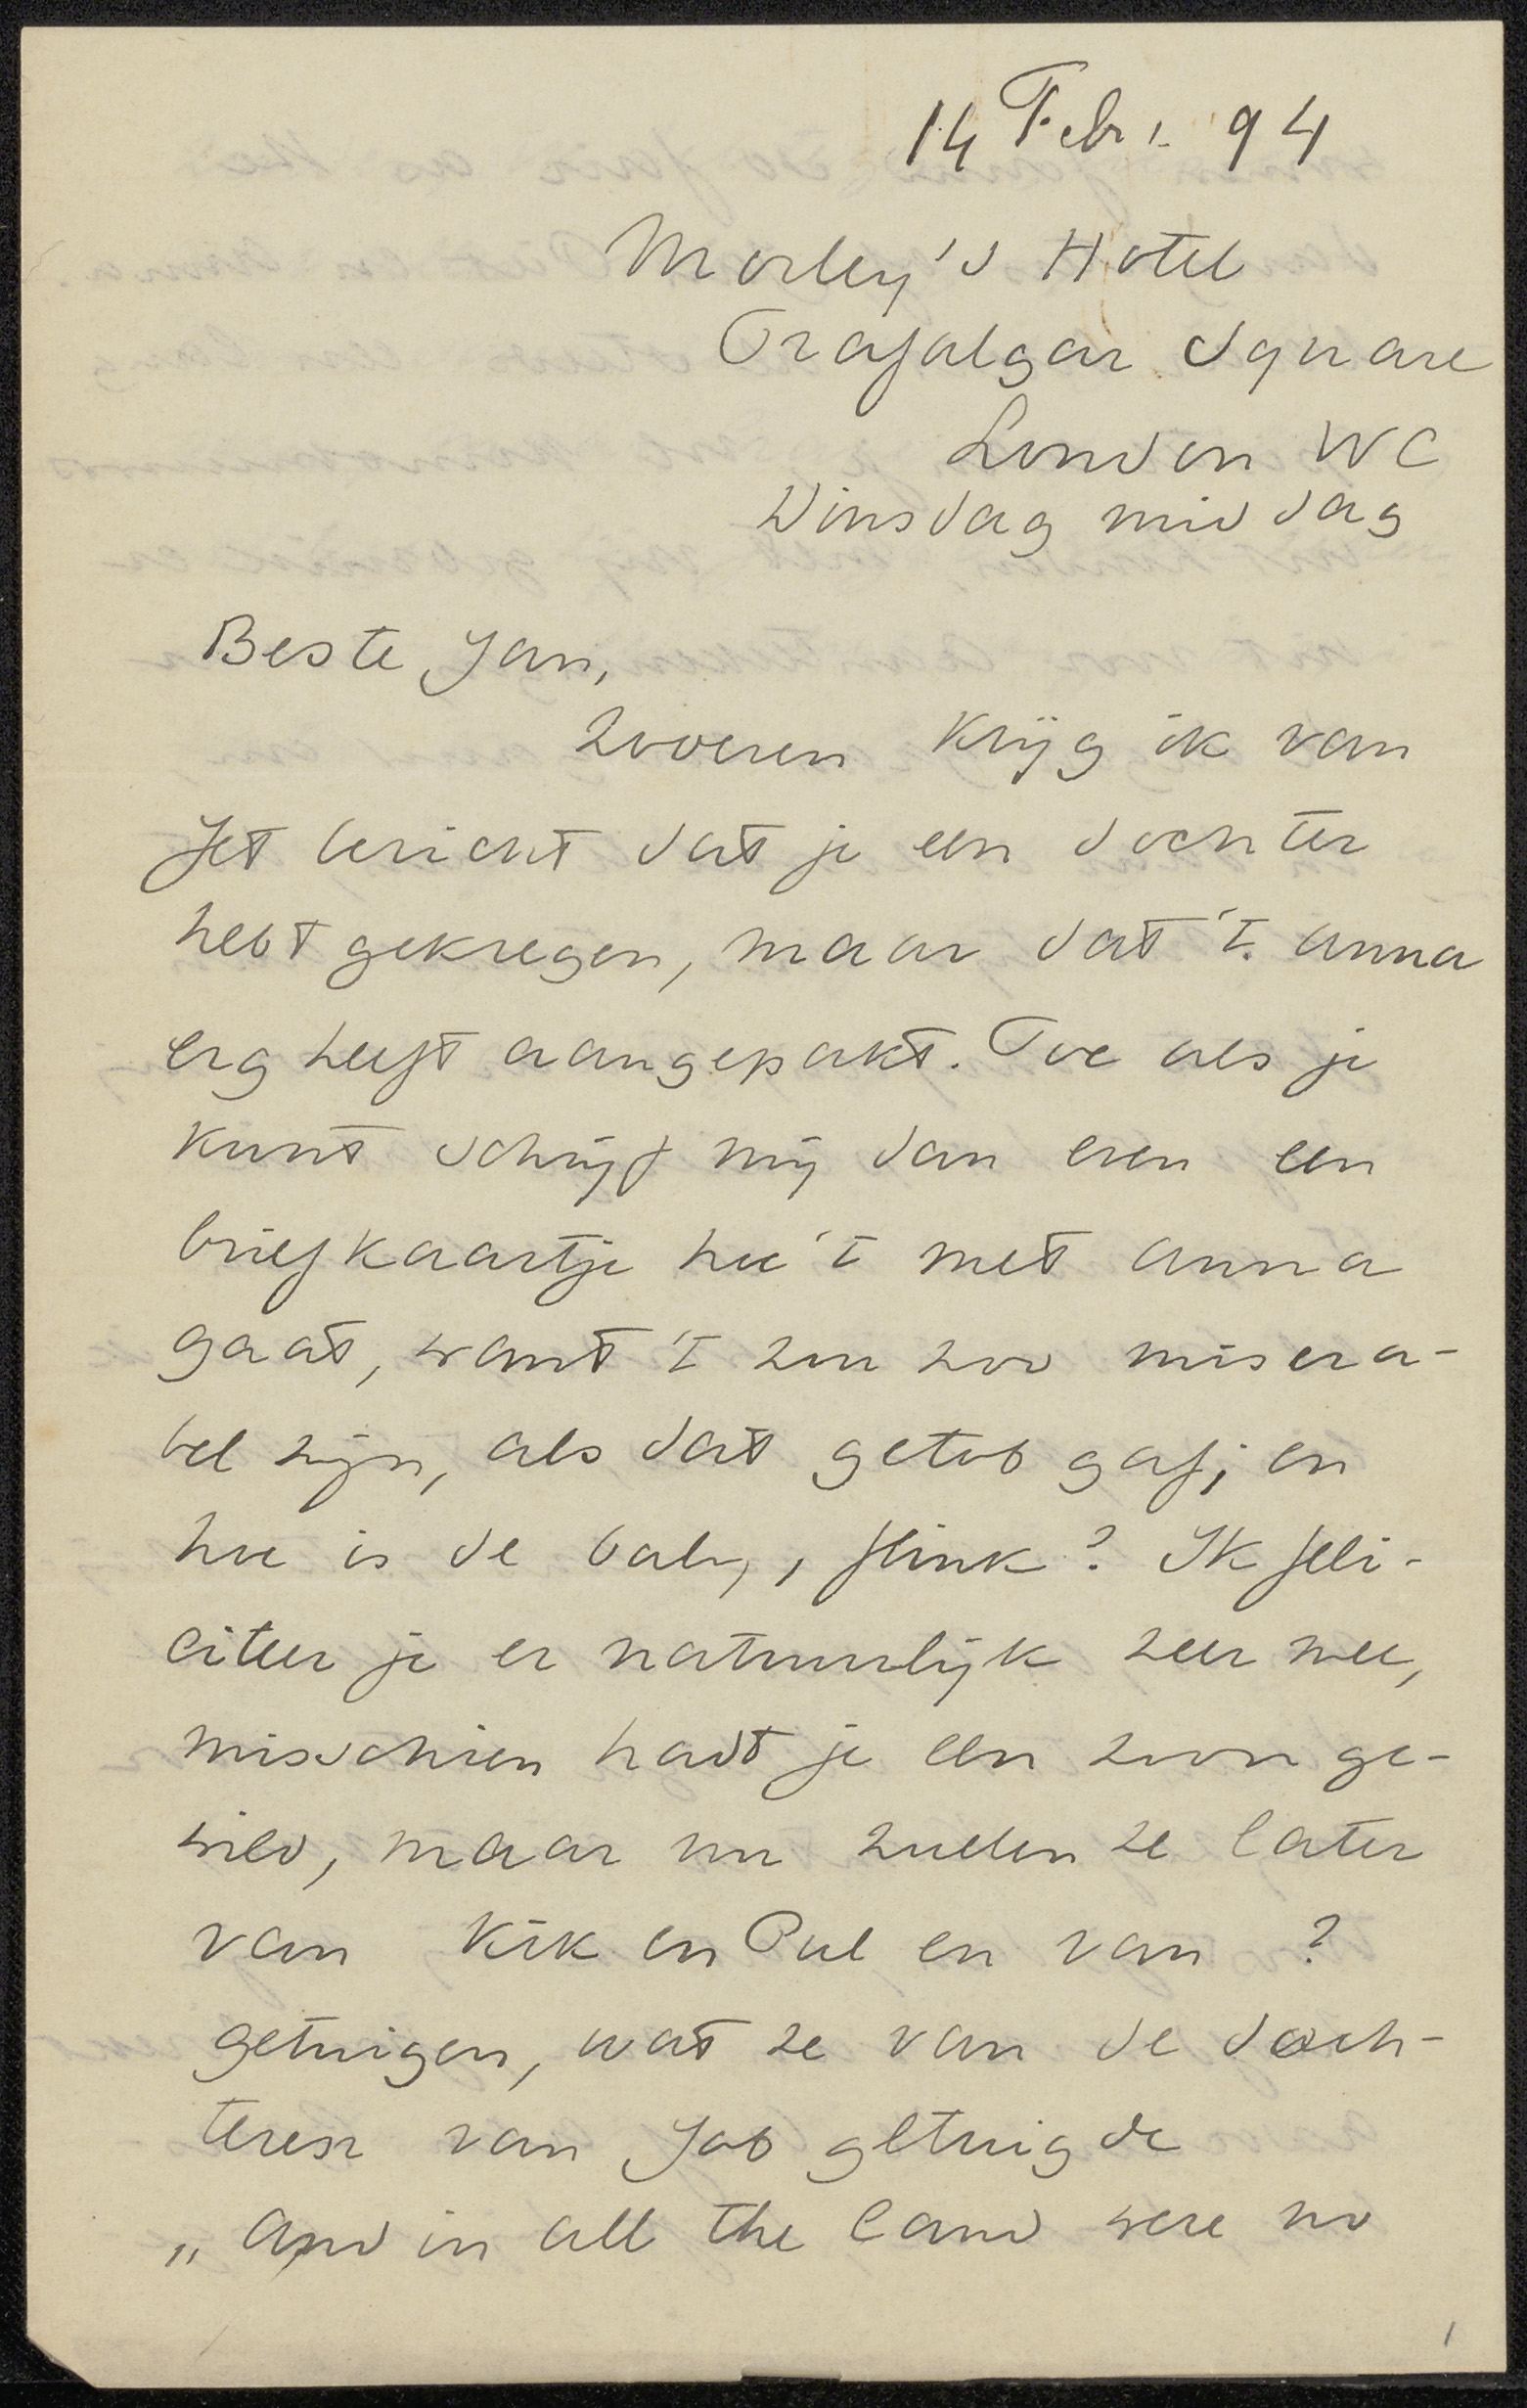 14 Febr. 94
Morley's Hotel
Trafalgar Square
London WC
Dinsdag middag
Beste Jan,
Zooeven krijg ik van
Jet bericht dat je een dochter
hebt gekregen, maar dat 't Anna
erg heeft aangepakt. Toe als je
kunt schrijf mij dan even een
briefkaartje hoe 't met Anna
gaat, want 't zou zoo misera-
bel zijn, als dat getob gaf; en
hoe is de baby, flink? Ik feli-
citeer je er natuurlijk zeer mee,
misschien hadt je een zoon ge-
wild, maar nu zullen ze later
van Kik en Pul en van ?
getuigen, wat ze van de doch-
teren van Job getuigde
„And in all the land were no
1